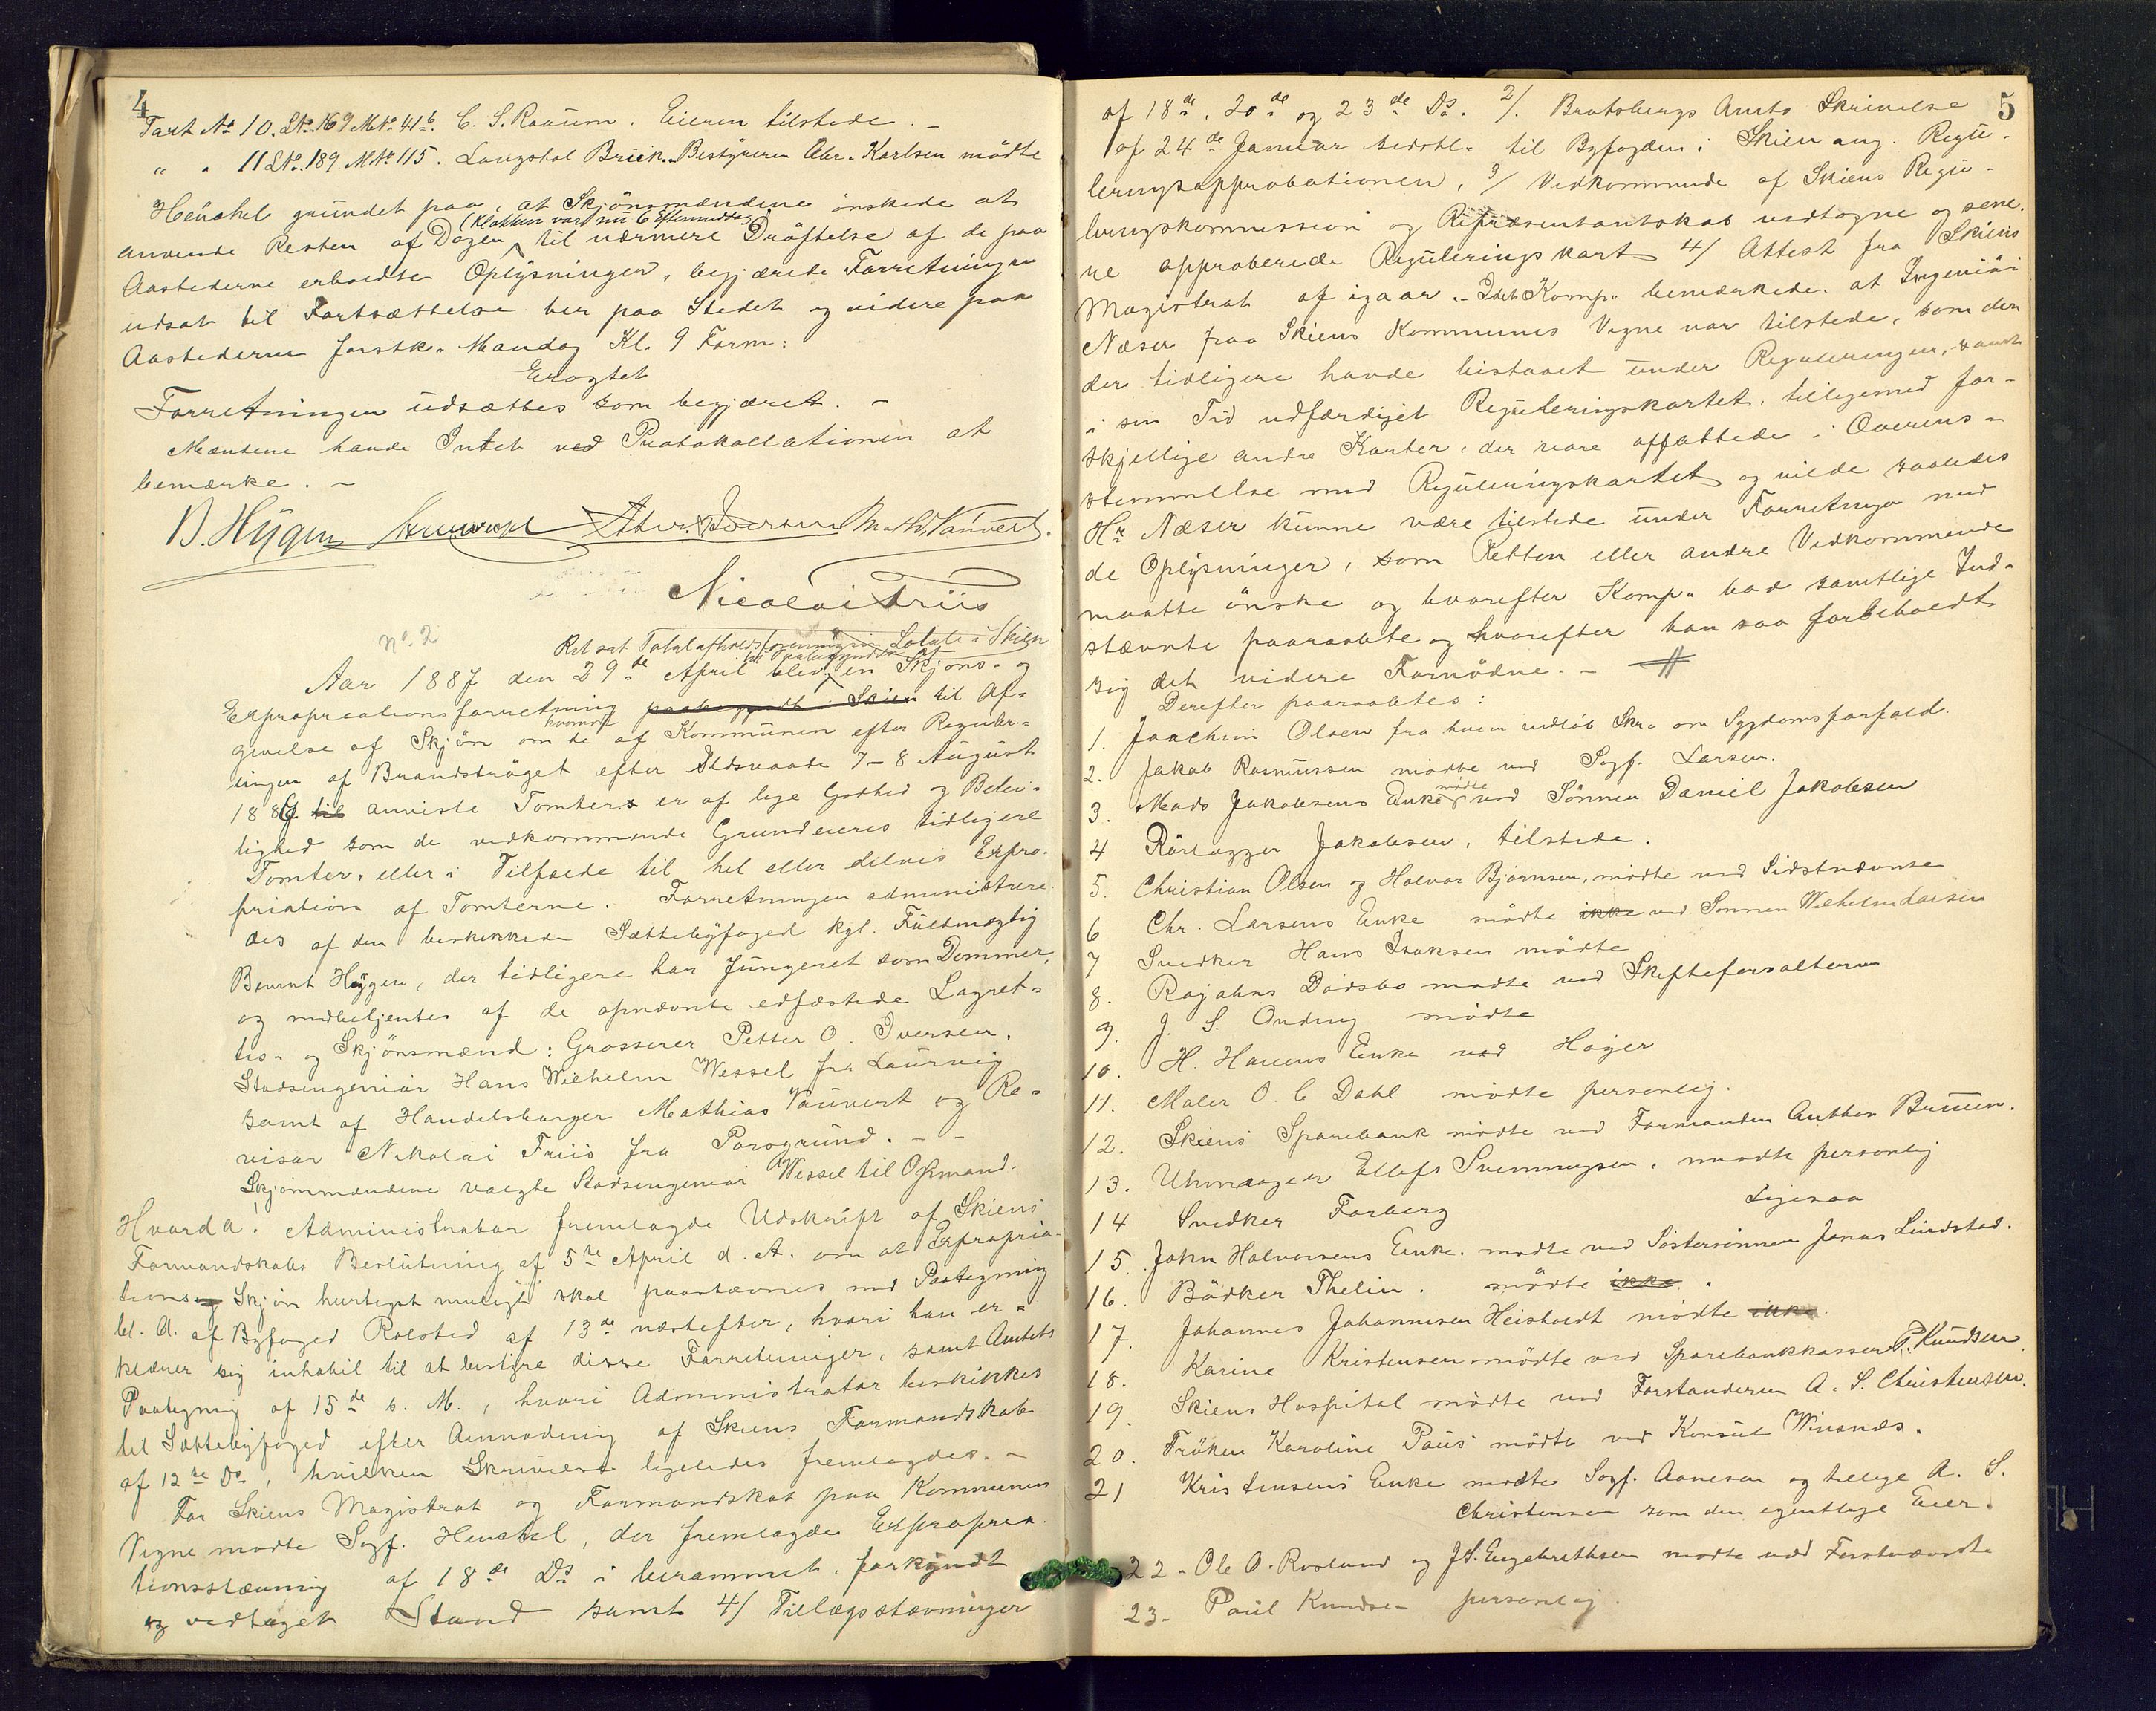 4
Tart No 10. LNo. 169 MNo. 41b. C. S. Rauum. Eieren tilstede. –
" " 11 LNo. 189 MNo. 115. Langstol Bruk. Bestyreren Abr. Karlsen mödte
Henschel grundet paa, at Skjönsmændene önskede at
(Klokken var nu 6 Eftermiddag)
anvende Resten af Dagen til nærmere Dröftelse af de paa
Aastederne erholdte Oplysninger, begjærede Forretningen
udsat til Fortsættelse her paa Stedet og videre paa
Aastederne førstk. Mandag Kl. 9 Form:
Eragtet
Forretningen udsættes som begjæret. –
Mændene havde Intet ved Protokollationen at
bemærke. –
B. Hygen Petter Iversen Math. Vauvert.
Nicolai Friis
No. 2
Ret sat Totalafholdsforeningens Lokale i Skien
til Paabegyndelse af
Aar 1887 den 29de April blev en Skjöns- og
Expropriationsforretning paabegyndt i Skien til Af-
givelse af Skjön om hvorvidt de af Kommunen efter Reguler-
ingen af Brandströget efter Ildsvaade 7–8 August
1886 til anviste Tomter er af lige Godhed og Belei-
lighed som de vedkommende Grundeieres tidligere
Tomter, eller i Tilfælde til hel eller delvis Expro-
priation af Tomterne. Forretningen administrere-
des af den beskikkede Sættebyfoged kgl. Fuldmægtig
Bernt Hygen, der tidligere har fungeret som Dommer,
og medbetjentes af de opnævnte edfæstede Lagret-
tes- og Skjönsmænd: Grosserer Petter O. Iversen,
Stadsingeniör Hans Wilhelm Wessel fra Laurvig
samt af Handelsborger Mathias Vauvert og Re-
visor Nikolai Friis fra Porsgrund. – –
Skjönmændene valgte Stadsingeniör Wessel til Ofmand.
Hvorda! Administrator fremlagde Udskrift af Skiens
Formandskabs Beslutning af 5te April d. A. om at Expropria-
tions Skjön hurtigst muligt skal paastævnes med Paategning
bl. A. af Byfoged Rolsted af 13de næstefter, hvori han er-
klærer sig inhabil til at bestyre disse Forretninger, samt Amtets
Paategning af 15de s. M., hvori Administrator beskikkes
til Sættebyfoged efter Anmodning af Skiens Formandskab
af 12te Ds, hvilken Skrivelse ligeledes fremlagdes. –
For Skiens Magistrat og Formandskab paa Kommunens
Vegne mödte Sagf. Henschel, der fremlagde Expropria-
tionsstævning af 18de Ds i berammet, forkyndt
og vedtaget Stand samt 4/ Tillægsstævninger
5
af 18de, 20de og 23de Ds. 2/. Bratsbergs Amts Skrivelse
af 24de Januar sidstl. til Byfogden i Skien ang. Regu-
leringsapprobationen, 3/ Vedkommende af Skiens Regu-
leringskommission og Repræsentantskab vedtagne og sene-
re approberede Reguleringskart 4/ Attest fra Skiens
Magistrat af igaar. – Idet Komp. bemærkede, at Ingeniör
Næser paa Skiens Kommunes Vegne var tilstede, som den
der tidligere havde bistaaet under Reguleringen, samt
i sin Tid udfærdiget Reguleringskartet, tilligemed for-
skjellige andre Karter, der vare affattede i Overens-
stemmelse med Reguleringskartet og vilde saaledes
Hr Næser kunne være tilstede under Forretningen med
de Oplysninger, som Retten eller andre Vedkommende
maatte önske og hvorefter Komp. bad samtlige Ind-
stævnte paaraabte og hvorefter han saa forbeholdt
sig det videre Fornödne. –
Derefter paaraabtes:
1. Joachim Olsen fra hvem indlöb Skr. om Sygdomsforfald.
2. Jakob Rasmussen mödte ved Sagf. Larsen.
3. Mads Jakobsens Enke mödte ved Sönnen Daniel Jakobsen
4 Rörlægger Jakobsen, tilstede.
5. Christian Olsen og Halvor Bjørnsen, mödte ved Sidstnævnte
6 Chr. Larsens Enke mödte ikke ved Sönnen Wilhelm Larsen
7 Snedker Hans Isaksen mödte
8. Rojahns Dödsbo mødte ved Skifteforvalteren
9. J. S. Ording mödte
10. H. Hanens Enke ved Höyer
11. Maler O. C Dahl mödte personlig.
12. Skiens Sparebank mödte ved Formanden Anthon Bruun.
13. Uhrmager Ellef Svenningsen, mødte personlig
14 Snedker Forberg Ligesaa
15. John Halvorsens Enke, mødte ved Söstersönnen Jonas Lindstad.
16. Bödker Thelin. mödte ikke.
17. Johannes Johannesen Heisholdt mödte ikke.
18. Karine Kristensen mödte ved Sparebankkasserer P. Knudsen.
19. Skiens Hospital mödte ved Forstanderen A. S. Christensen.
20. Fröken Karoline Paus mödte ved Konsul Winsnæs.
21 Kristensens Enke mødte Sagf. Aanesen og tillige A. S.
Christensen som den egentlige Eier.
22. Ole O. Rosland og J. S. Engebrethsen mødte ved Førstnævnte
23. Paul Knudsen personlig.